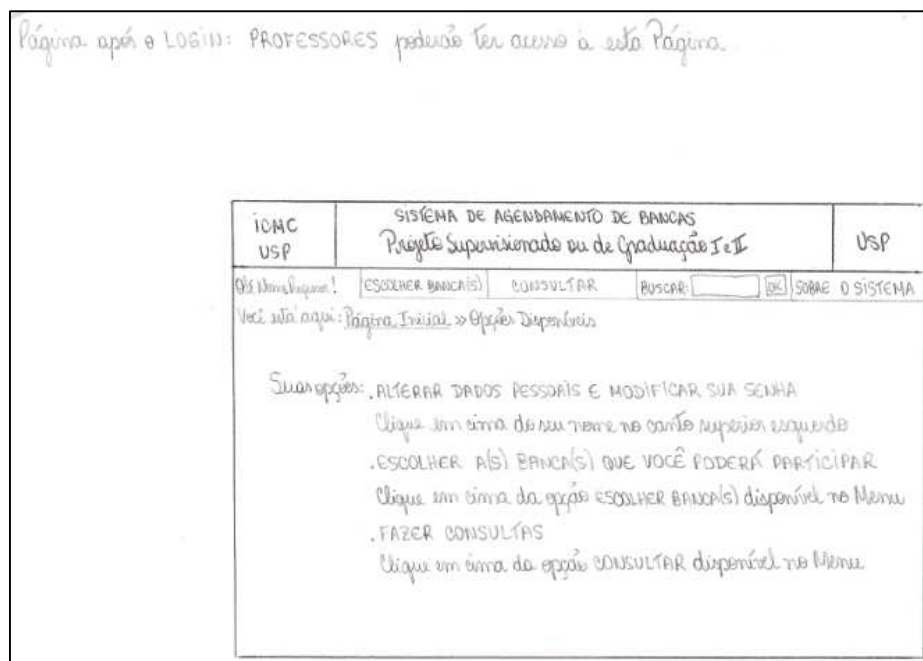 Página após o LOGIN: PROFESSORES poderão ter acesso à esta Página.
ICMC
USP
SISTEMA DE AGENDAMENTO DE BANCAS
Projeto Supervisionado ou de Graduação I e II
USP
Olá! ESCOLHER BANCA(S) CONSULTAR BUSCAR: OK SOBRE O SISTEMA
Você está aqui: Página Inicial >> Opções Disponíveis
Suas opções: . ALTERAR DADOS PESSOAIS E MODIFICAR SUA SENHA
Clique em cima do seu nome no canto superior esquerdo
. ESCOLHER A(S) BANCA(S) QUE VOCÊ PODERÁ PARTICIPAR
Clique em cima da opção ESCOLHER BANCA(S) disponível no Menu
. FAZER CONSULTAS
Clique em cima da opção CONSULTAR disponível no Menu